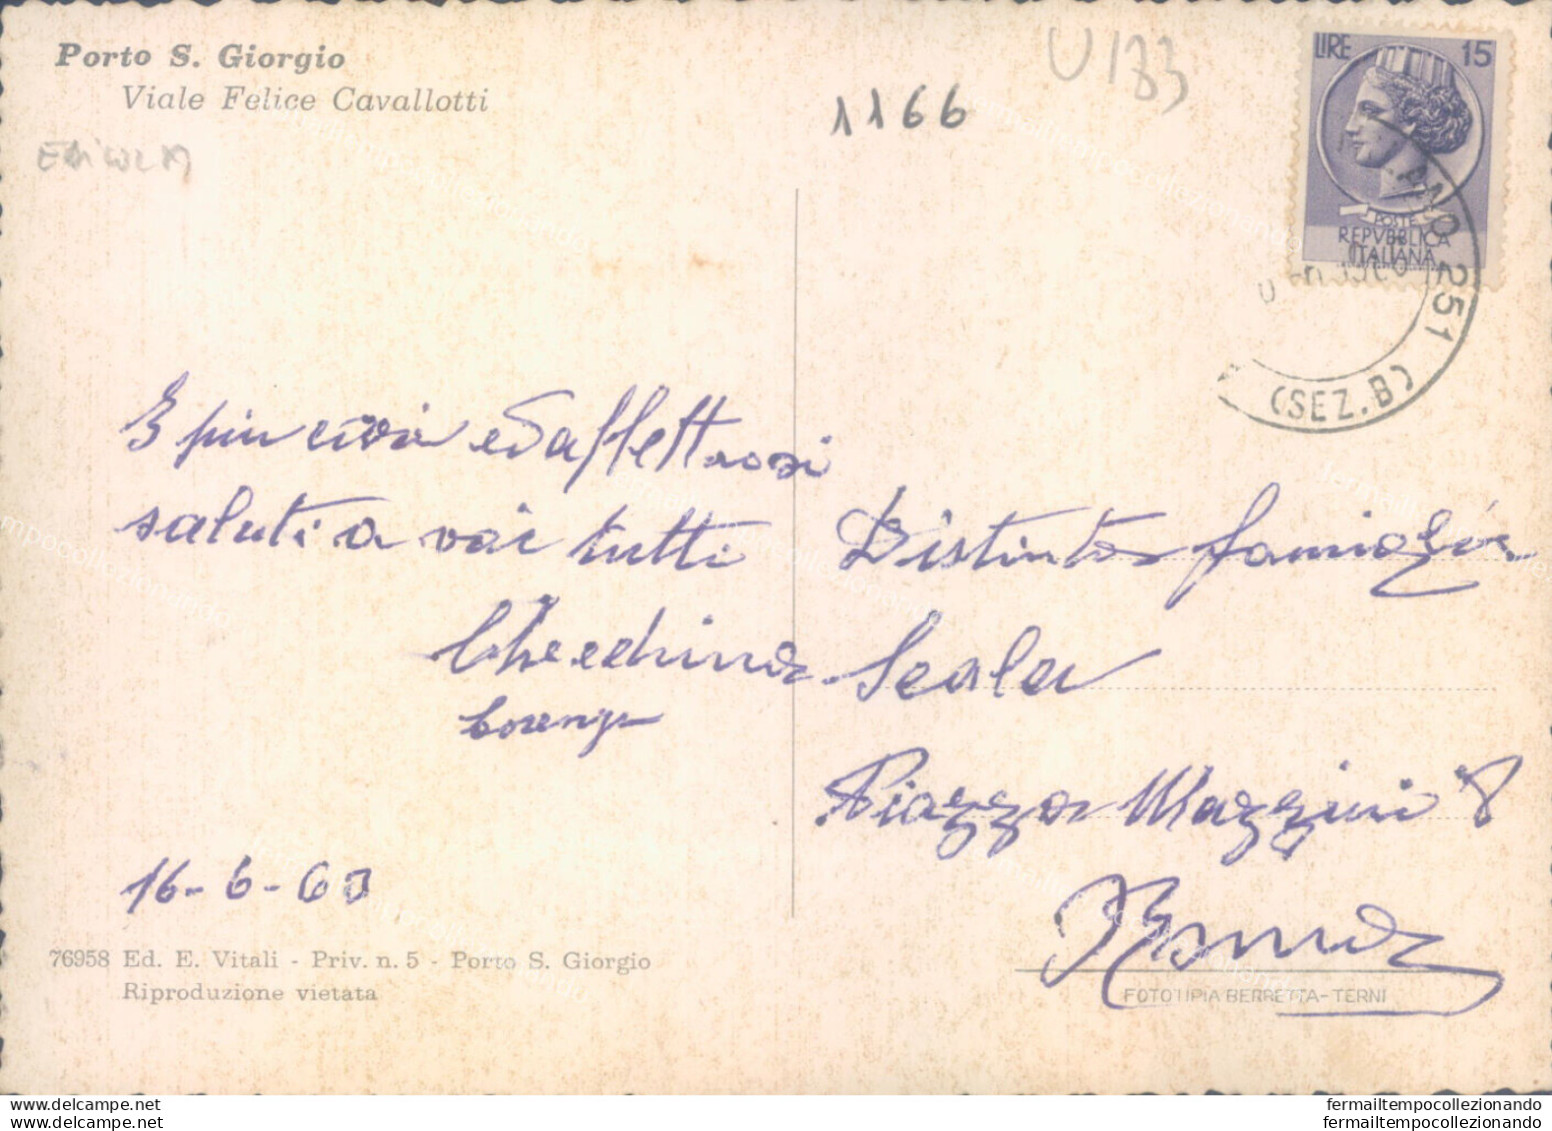 Porto S. Giorgio
Viale Felice Cavallotti
1166
U 133
LIRE 15
POSTE
REPVBBLICA
ITALIANA
ANO 251
(SEZ. B)
I più vivi ed affettuosi
saluti a voi tutti
Checchina
Lorenzo
16-6-60
Distinta famiglia
Scala
Piazza Mazzini 8
Roma
76958 Ed. E. Vitali - Priv. n. 5 - Porto S. Giorgio
Riproduzione vietata
FOTOTIPIA BERRETTA-TERNI
fermailtempocollezionando
fermailtempocollezionando
fermailtempocollezionando
fermailtempocollezionando